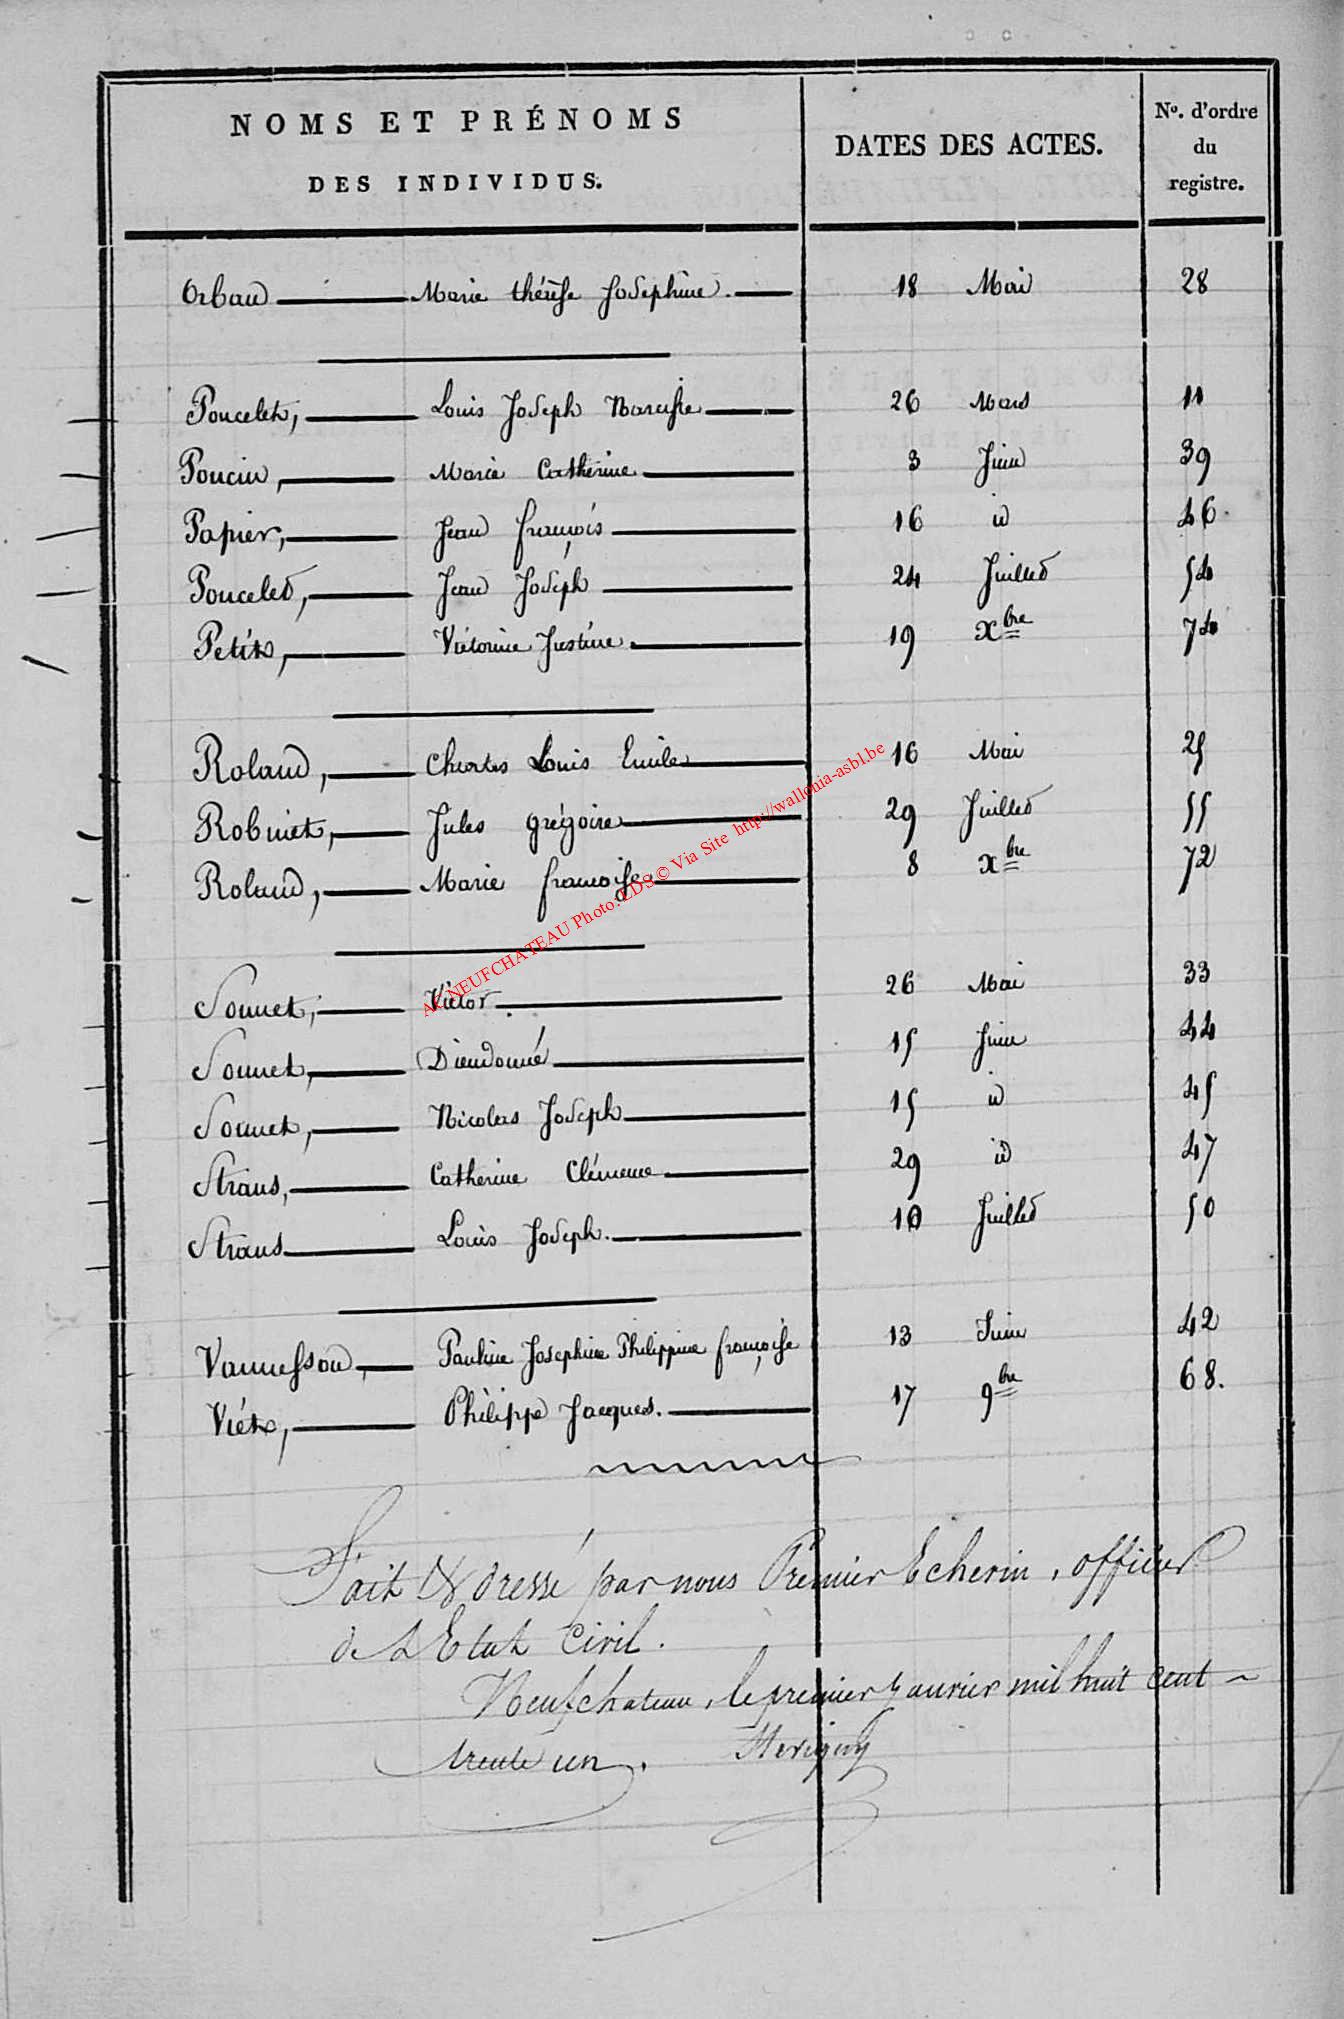 NOMS ET PRÉNOMS
DES INDIVIDUS.
DATES DES ACTES.
No. d'ordre
du
registre.
Orban Marie thérèse Josephine. 18 Mai 28
Poncelet, Louis Joseph Narcisse 26 Mars 11
Poncin, Marie Catherine 3 Juin 39
Papier, Jean françois 16 id 46.
Poncelet, Jean Joseph 24 Juillet 54
Petit, Victorine Justine. 19 Xbre 74
Roland, Charles Louis Emile 16 Mai 25
Robinet, Jules grégoire 29 Juillet 55
Roland, Marie françoise 8 Xbre 72
Sonnet, Victor 26 Mai 33
Sonnet, Dieudonné 15 Juin 44
Sonnet, Nicolas Joseph 15 id 45
Straus, Catherine Clémence 29 id 47
Straus Louis Joseph. 10 Juillet 50
Vannesson, Pauline Josephine Philippine françoise 13 Juin 42
Viét, Philippe Jacques. 17 9bre 68.
Fait & dressé par nous Premier Echevin, officier
de L'Etat Civil.
Neufchateau, le premier Janvier mil huit cent
trente un.
AC NEUFCHATEAU Photo: LDS © Via Site http://wallonia-asbl.be